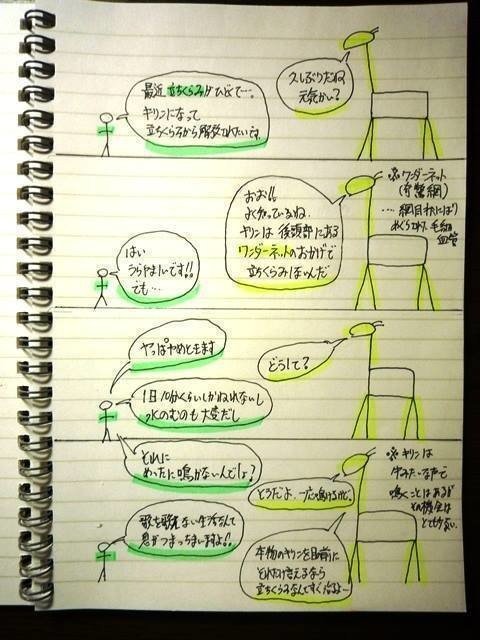 久しぶりだね
元気かい？
最近 立ちくらみがひどくて…。
キリンになって
立ちくらみから解放されたいです。
おお!!
よく知っているね。
キリンは後頭部にある
ワンダーネットのおかげで
立ちくらみはないんだ
※ワンダーネット
(奇驚網)
…網目状にはり
めぐらされた毛細
血管
はい
うらやましいです!!
でも…
やっぱやめときます
どうして？
1日10分くらいしかねれないし
水のむのも大変だし
それに
めったに鳴かないんでしょ？
そうだよ。一応鳴けるけど。
※キリンは
牛みたいな声で
鳴くことはあるが
その機会は
とても少ない。
歌を歌えない生活なんて
息がつまっちまいますよ!!
本物のキリンを目前に
それだけ言えるなら
立ちくらみなんてすぐ治るよー